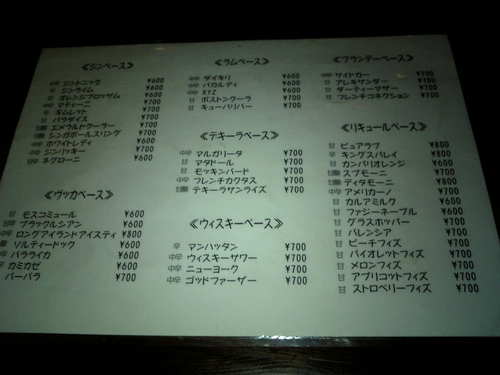 ≪ジンベース≫
ジントニック ¥600
ジンライム ¥600
オレンジブロッサム ¥600
マティーニ ¥700
ギムレット ¥700
パラダイス ¥700
エメラルドクーラー ¥700
シンガポールスリング ¥700
ホワイトレディ ¥700
ジンリッキー ¥700
ネグローニ ¥600
≪ウォッカベース≫
甘 モスコミュール ¥600
甘 ブラックルシアン ¥600
中辛 ロングアイランドアイスティ ¥800
ソルティードック ¥600
中辛 バラライカ ¥600
辛 カミカゼ ¥600
バーバラ ¥700
≪ラムベース≫
中辛 ダイキリ ¥600
中辛 バカルディ ¥600
中辛 XYZ ¥600
甘 ボストンクーラ ¥700
甘 キューバリバー ¥700
≪テキーラベース≫
中辛 マルガリータ ¥700
甘 マタドール ¥700
甘 モッキンバード ¥700
中辛 フレンチカクタス ¥700
テキーラサンライズ ¥700
≪ウィスキーベース≫
辛 マンハッタン ¥700
中辛 ウィスキーサワー ¥700
中辛 ニューヨーク ¥700
中辛 ゴッドファーザー ¥700
≪ブランデーベース≫
中辛 サイドカー ¥700
甘 アレキサンダー ¥700
甘 ダーティーマザー ¥700
甘 フレンチコネクション ¥700
≪リキュールベース≫
甘 ピュアラブ ¥800
甘 キングスバレイ ¥800
甘 カンパリオレンジ ¥600
スプモーニ ¥700
ディタモーニ ¥700
中辛 アメリカーノ ¥700
甘 カルアミルク ¥600
甘 ファジーネーブル ¥600
甘 グラスホッパー ¥700
甘 バレンシア ¥700
甘 ピーチフィズ ¥700
甘 バイオレットフィズ ¥700
甘 メロンフィズ ¥700
甘 アプリコットフィズ ¥700
甘 ストロベリーフィズ ¥700